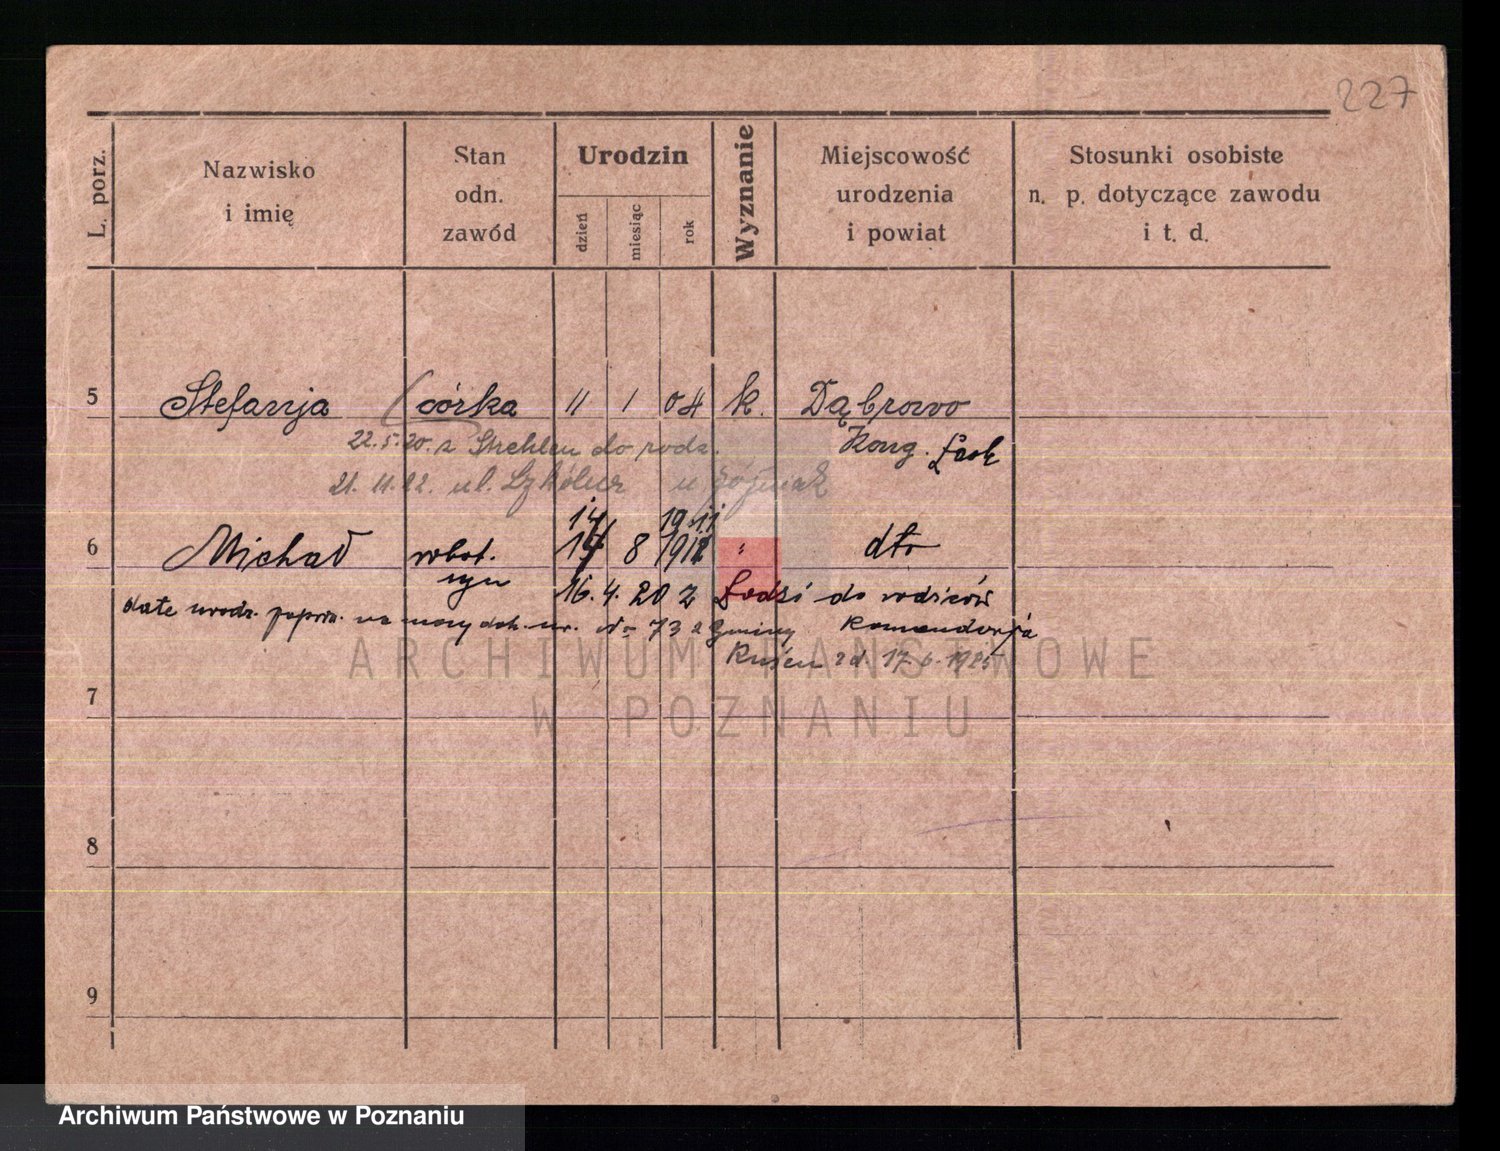 227
L. porz.
Nazwisko
i imię
Stan
odn.
zawód
Urodzin
dzień
miesiąc
rok
Wyznanie
Miejscowość
urodzenia
i powiat
Stosunki osobiste
n. p. dotyczące zawodu
i t. d.
5 Stefanja córka 11 1 04 k. Dąbrowo
22.5.20. z Strehlen do rodz. Kong. Łask
21. 11. 22. ul.
14 1911
6 Michał robot. 8 " dto
syn 16. 4. 20 z Łodzi do rodziców
date urodz. popra. na mocy dok. ur. No 73 z Gminy
17. 6. 1925
ARCHIWUM PAŃSTWOWE
W POZNANIU
7
8
9
Archiwum Państwowe w Poznaniu